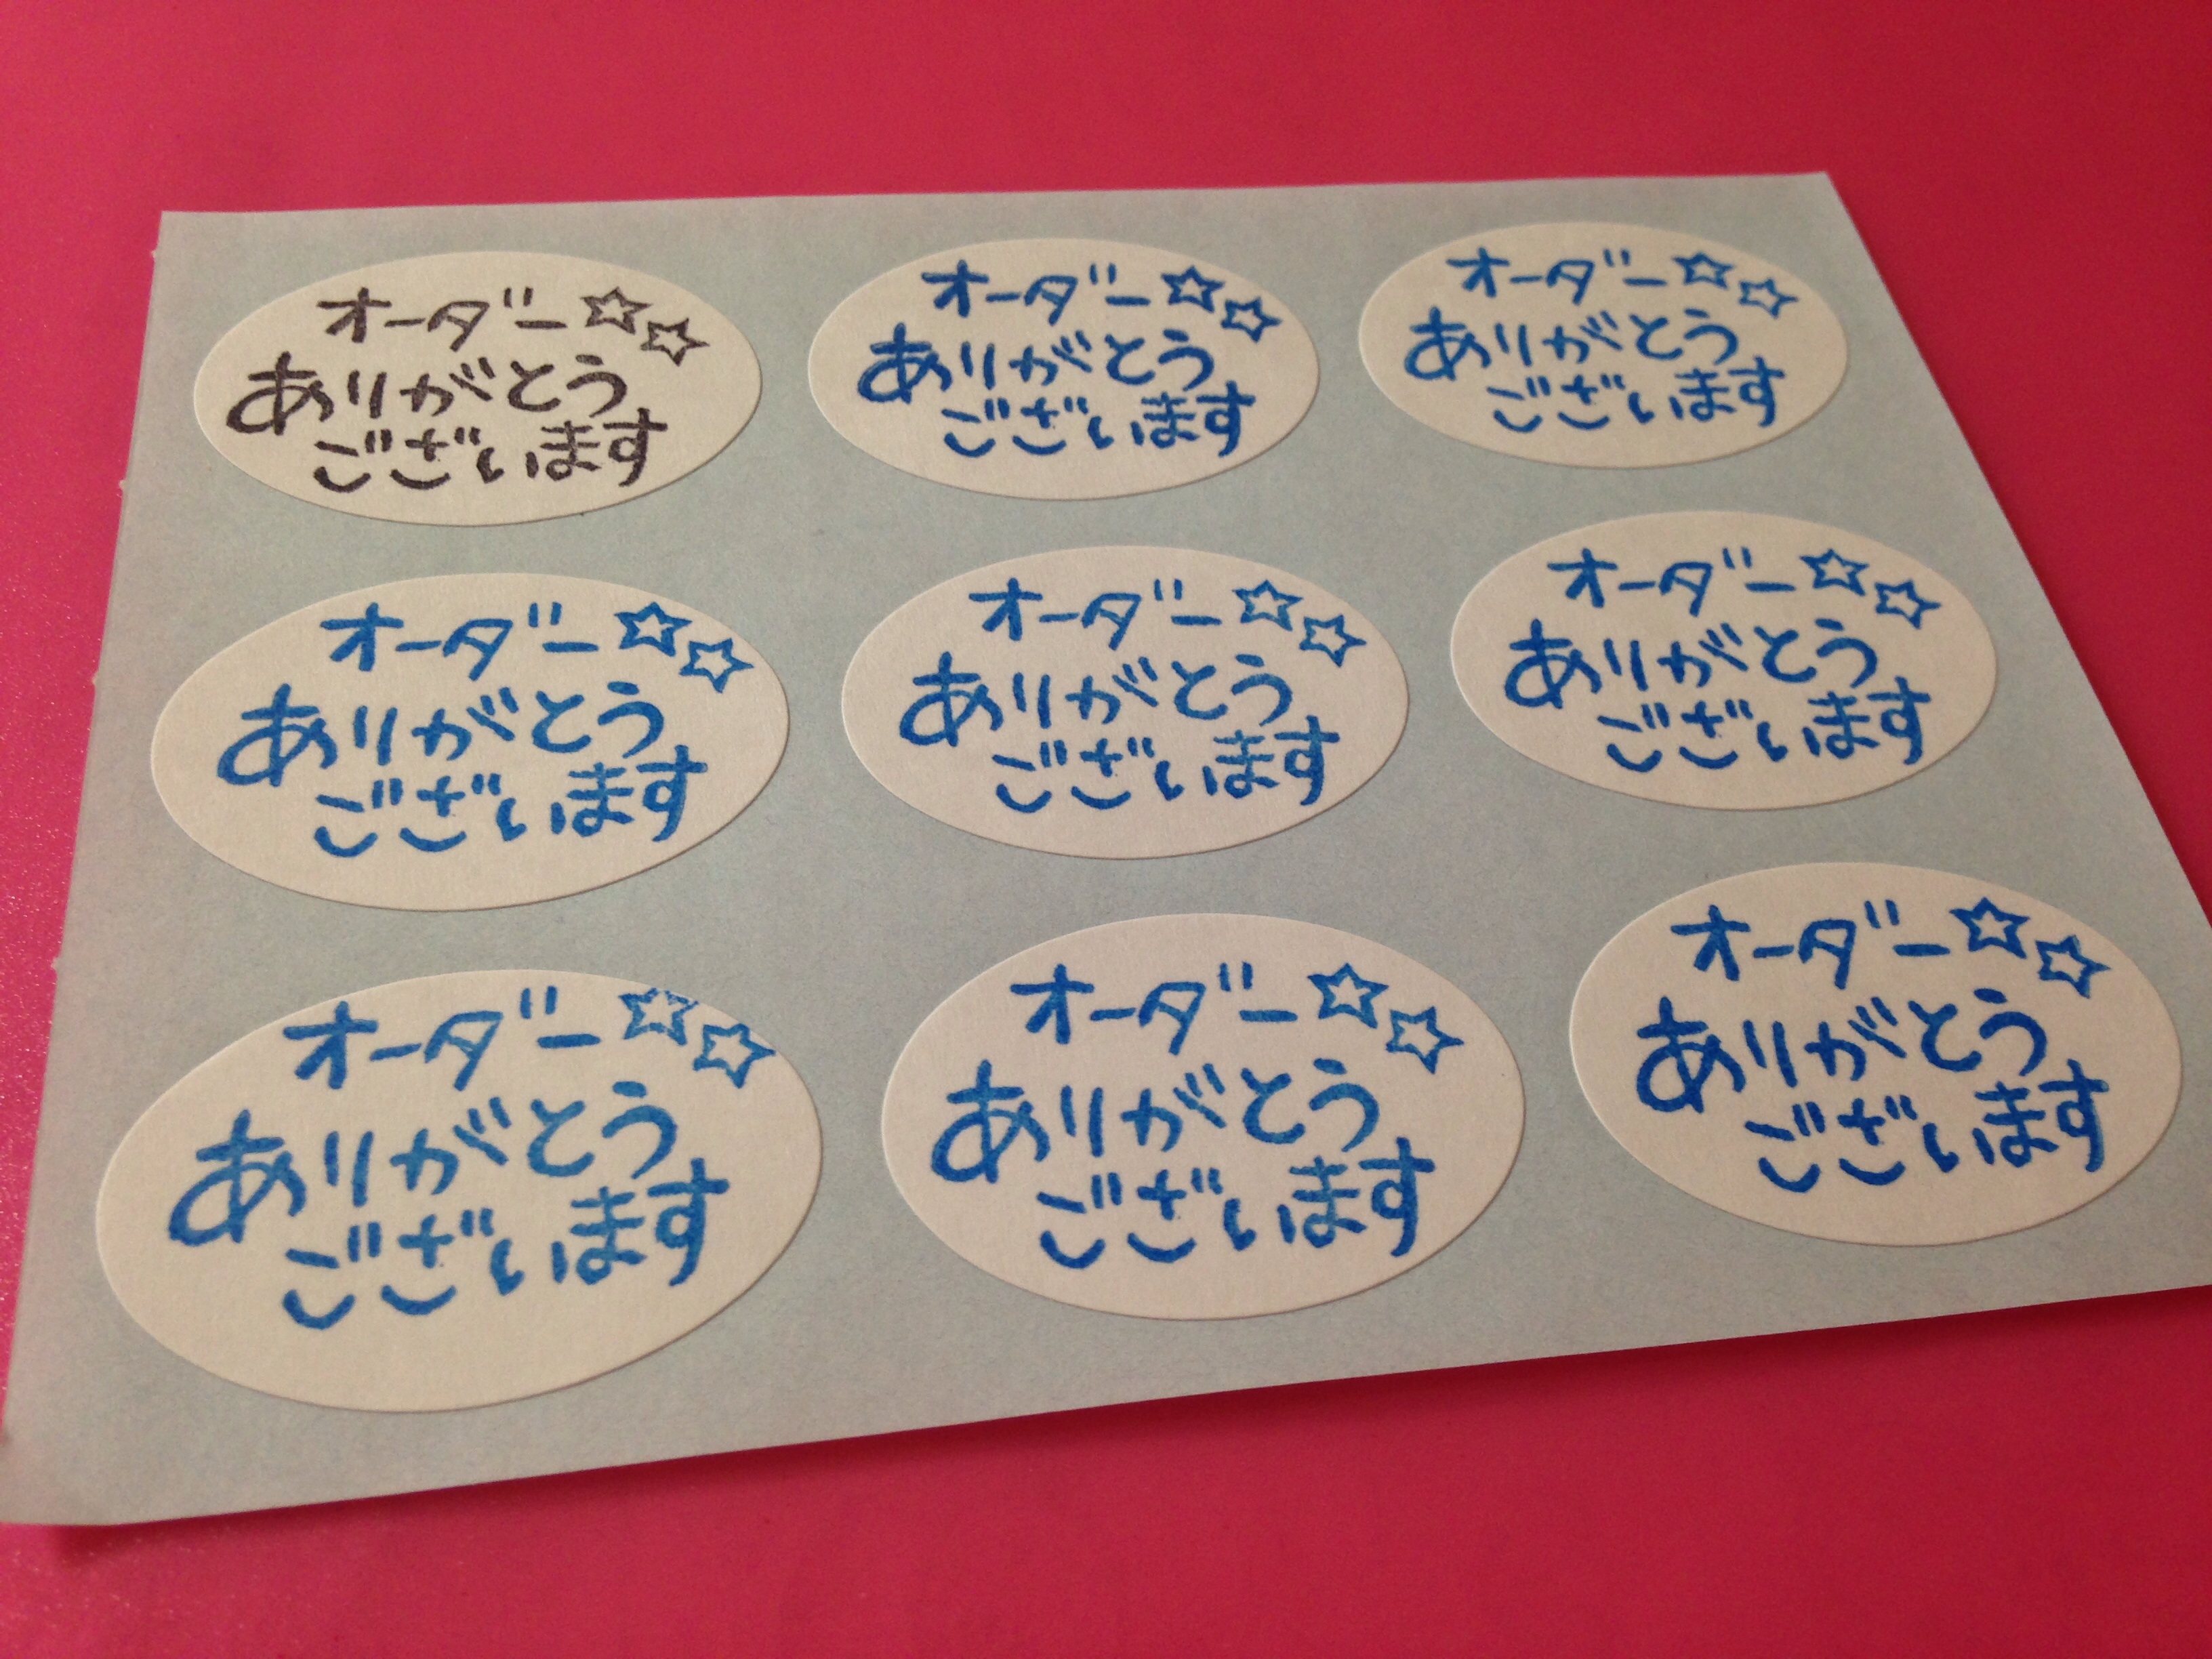 オーダー☆☆
ありがとう
ございます
オーダー☆☆
ありがとう
ございます
オーダー☆☆
ありがとう
ございます
オーダー☆☆
ありがとう
ございます
オーダー☆☆
ありがとう
ございます
オーダー☆☆
ありがとう
ございます
オーダー☆☆
ありがとう
ございます
オーダー☆☆
ありがとう
ございます
オーダー☆☆
ありがとう
ございます